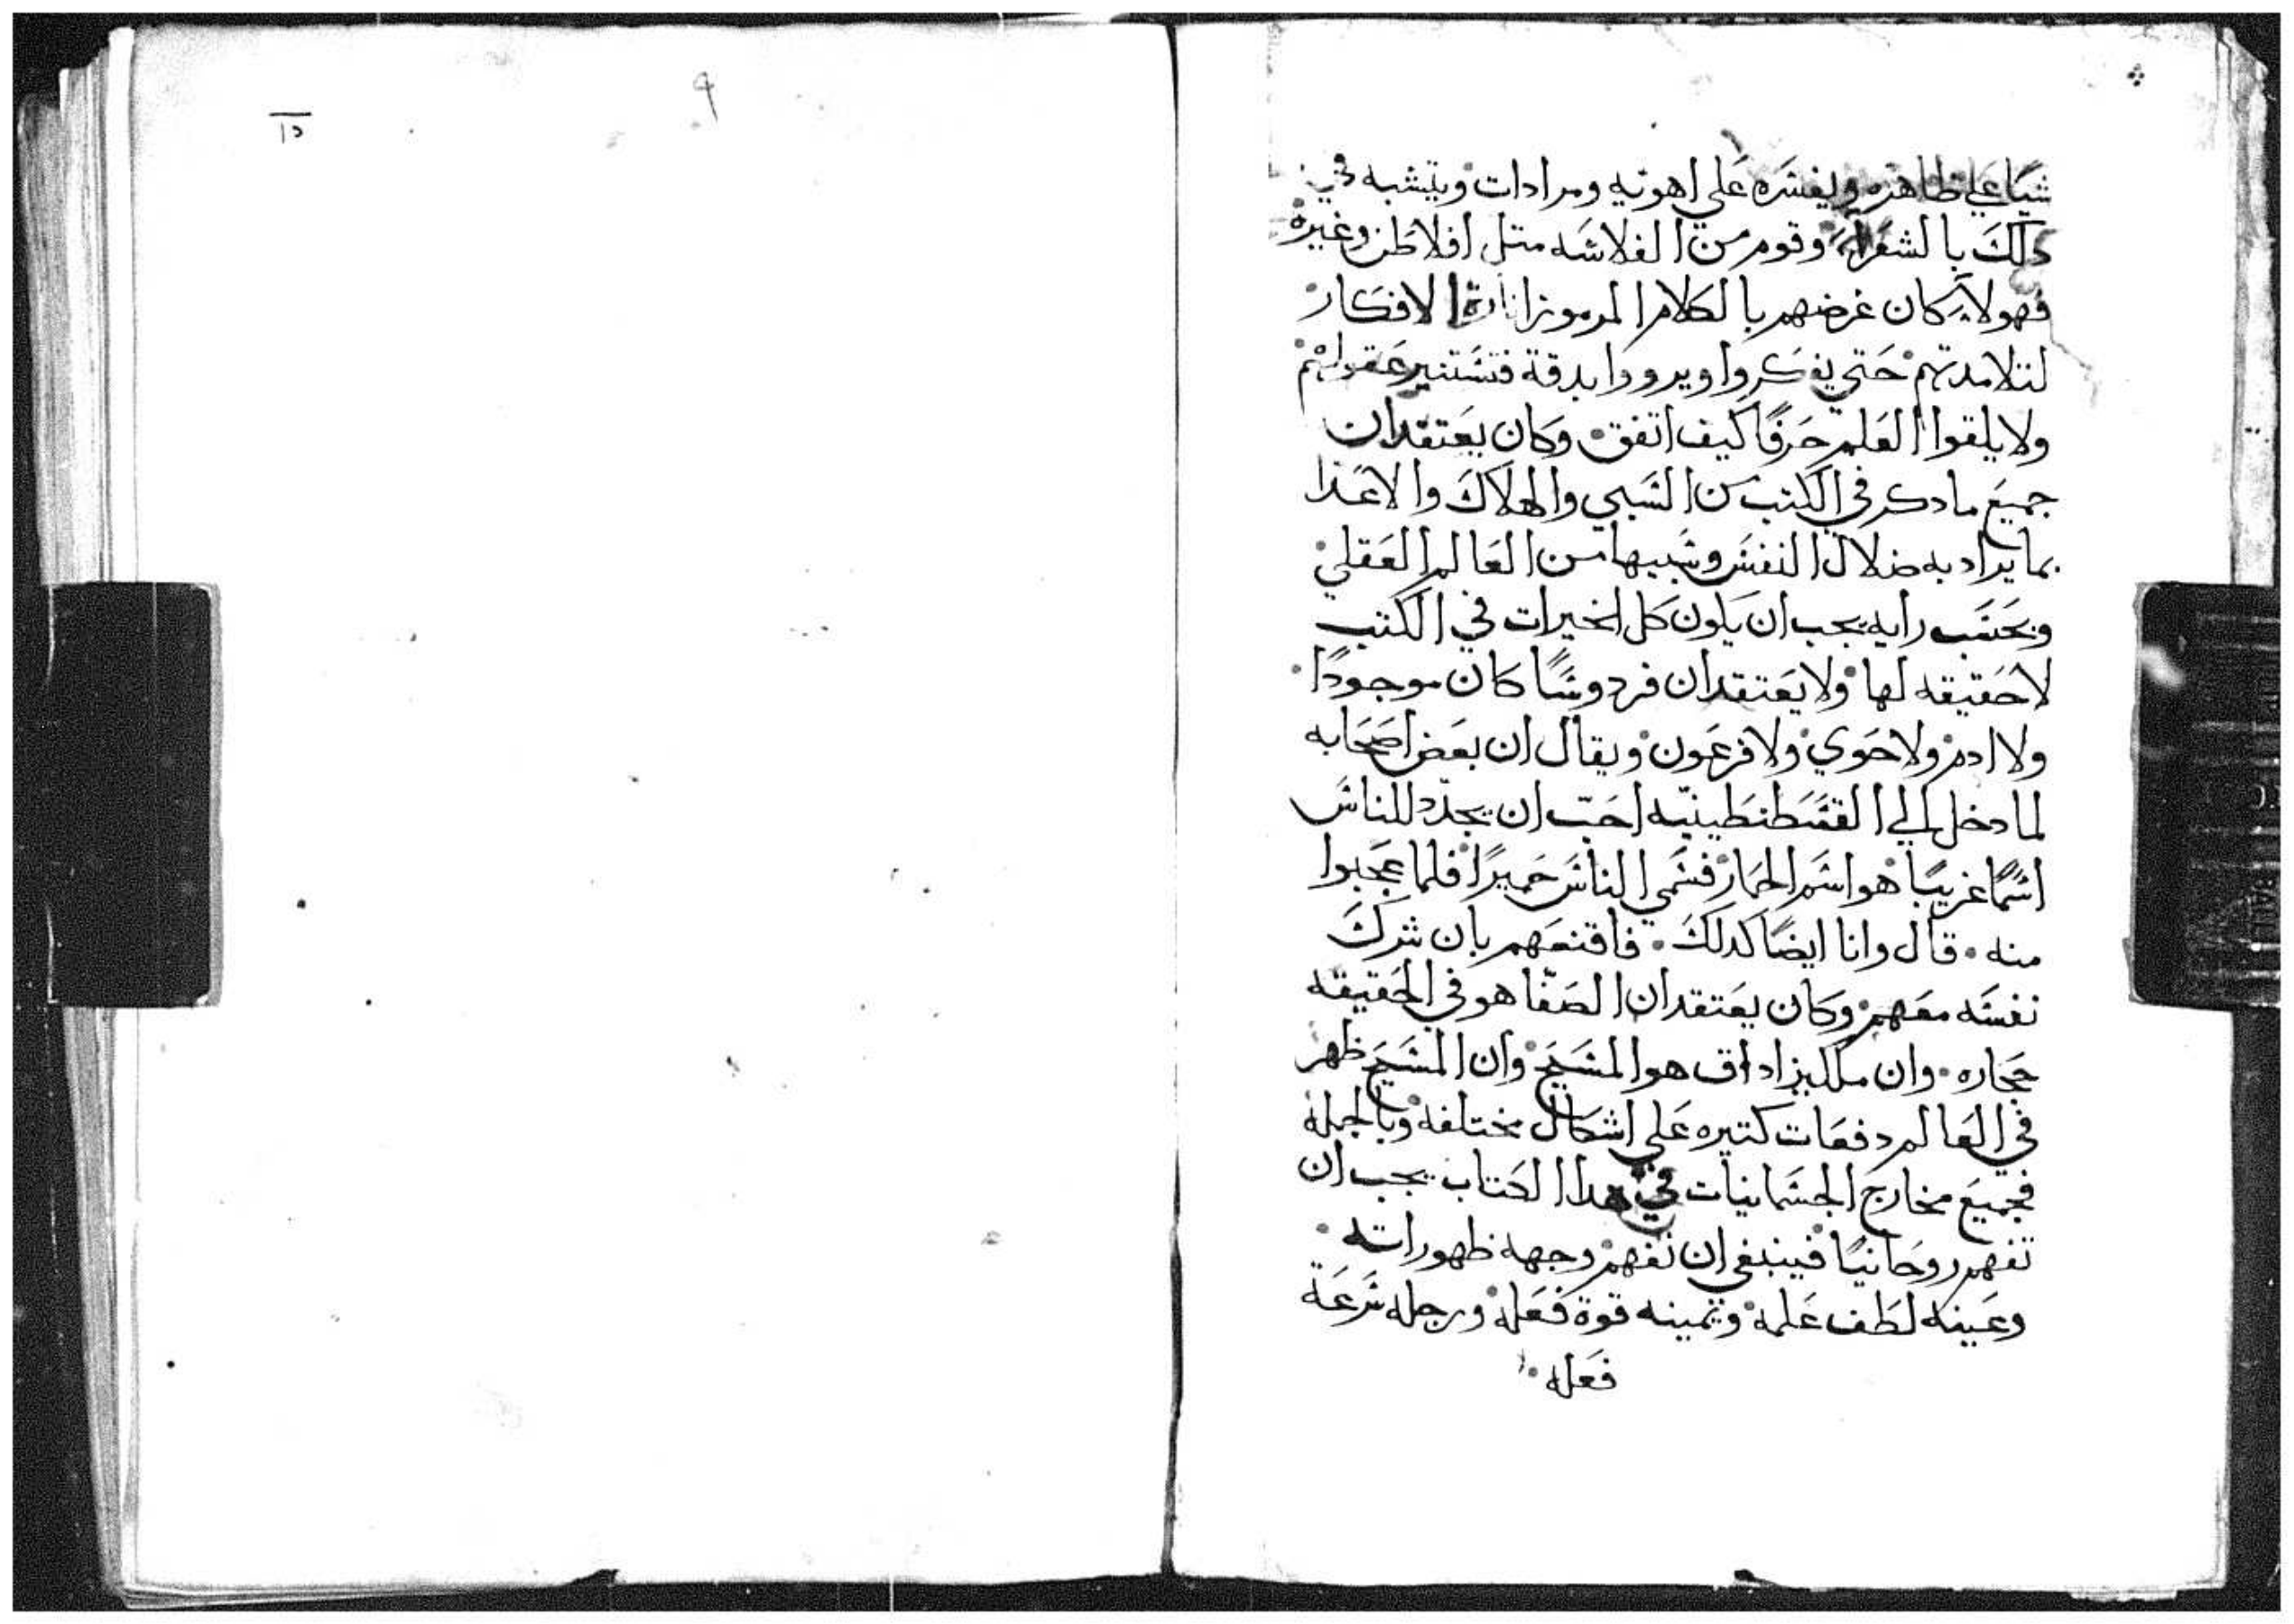 شيًا علي ظاهره ويفسَره عَلي اهويه ومرادات ويتشبه في
دلكَ بالشعَراء وقوم من الفلاسَه متل افلاطن وغيره
فهولاء كان غرضهم بالكلام المرموز انارة الافكار
لتلامدتهم حَتي يفكروا ويرووا بدقة فتسَتنير عَقولهم
ولا يلقوا العَلم حَرفًا كيف اتفق وكان يعَتقد ان
جميعَ مادكر في الكتب من السَبي والهلاك والاعَدا
بما يراد به ضلال النفسَ وسَبيها من العَالم العَقلي
وبحَسَب رايه يجب ان يكون كل الخيرات في الكتب
لاحَقيقه لها ولا يعَتقد ان فردوسًا كان موجودًا
ولا ادم ولا حَوي ولا فرعَون ويقال ان بعَض اصَحَابه
لما دخل الي القسَطنطينيّه احَبّ ان يجدّد للناسَ
اسَمًا غريبًا هو اسَم الحمَار فسَمي الناسَ حَميرًا فلما عَجبوا
منه قال وانا ايضًا كدلكَ فاقنعَهم بان شركَ
نفسَه معَهم وكان يعَتقد ان الصَفّا هو في الحَقيقه
حَجاره وان ملكيزاداق هو المسَيحَ وان المسَيحَ ظهر
في العَالم دفعَات كتيره عَلي اشكال مختلفه وبالجمله
فجميعَ مخارج الجسَمانيات في هدا الكتاب يجب ان
تفهم روحَانيًا فينبغي ان نفهم وجهه ظهوراته
وعَينه لطَف عَلمه ويمينه قوة فعَله ورجله سَرعَة
فعَله
١٥
٩